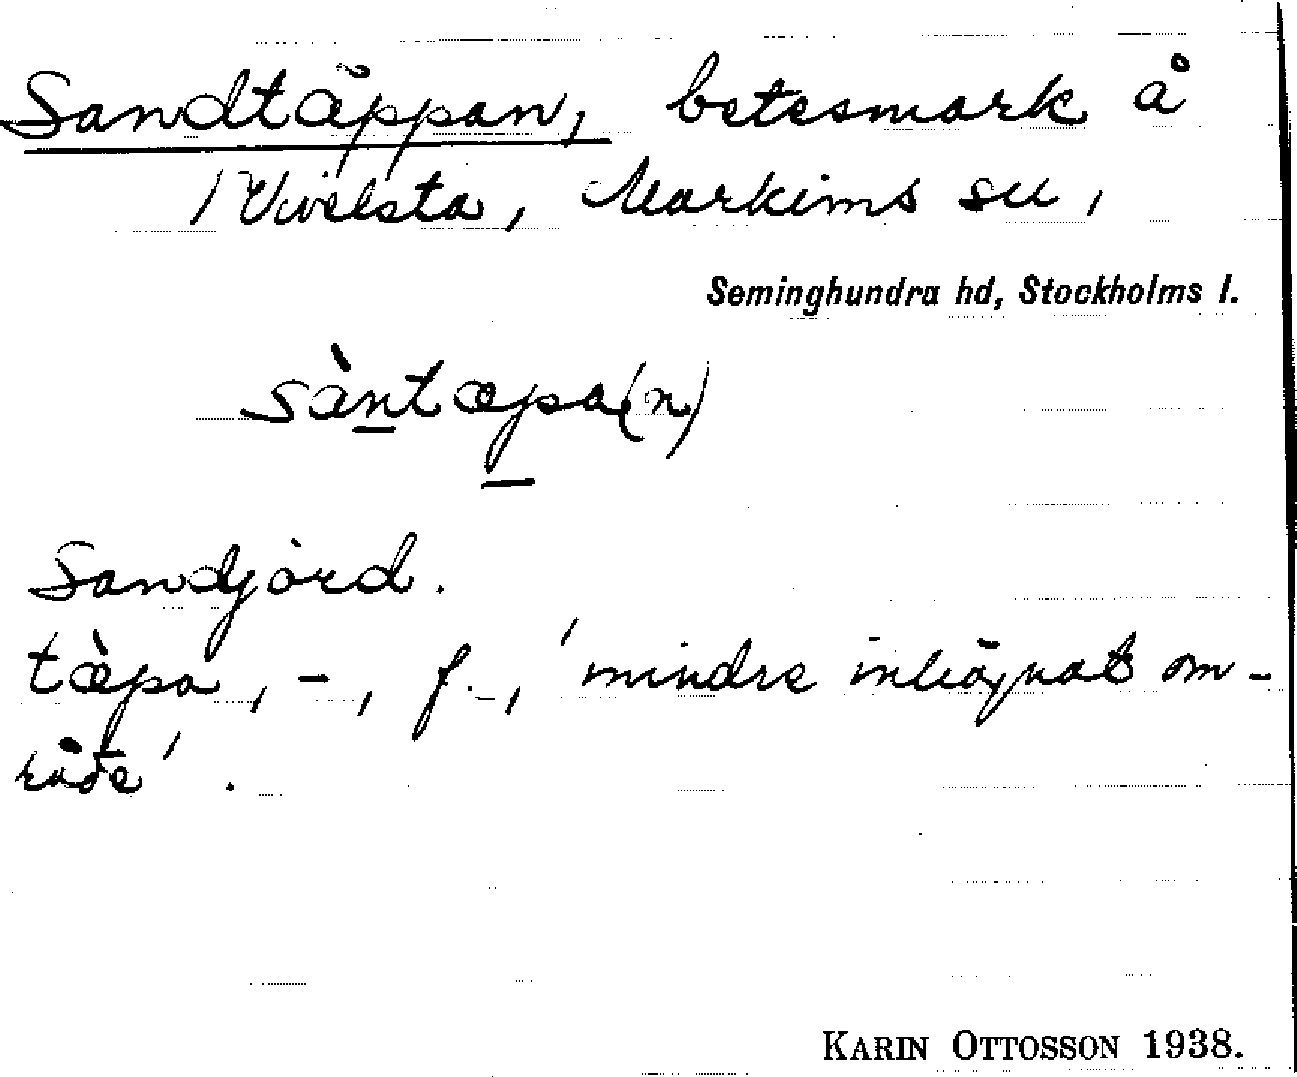 Sandtäppan, betesmark å
/ Vivelsta, Markims sn,
Seminghundra hd, Stockholms l.
sàn̲tæp̲a(n)
Sandjord.
tæ̀pa, -, f., 'mindre inhägnat om-
råde'.
KARIN OTTOSSON 1938.